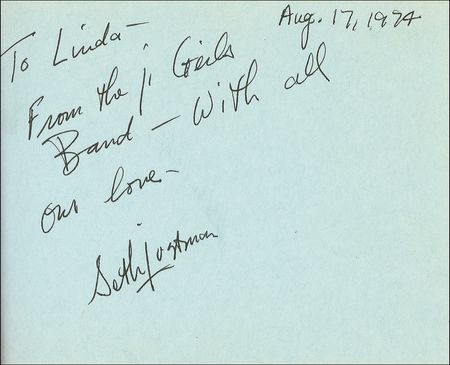 Aug. 17, 1974
To Linda—
From the J. Geils
Band — With all
our love—
Seth Justman